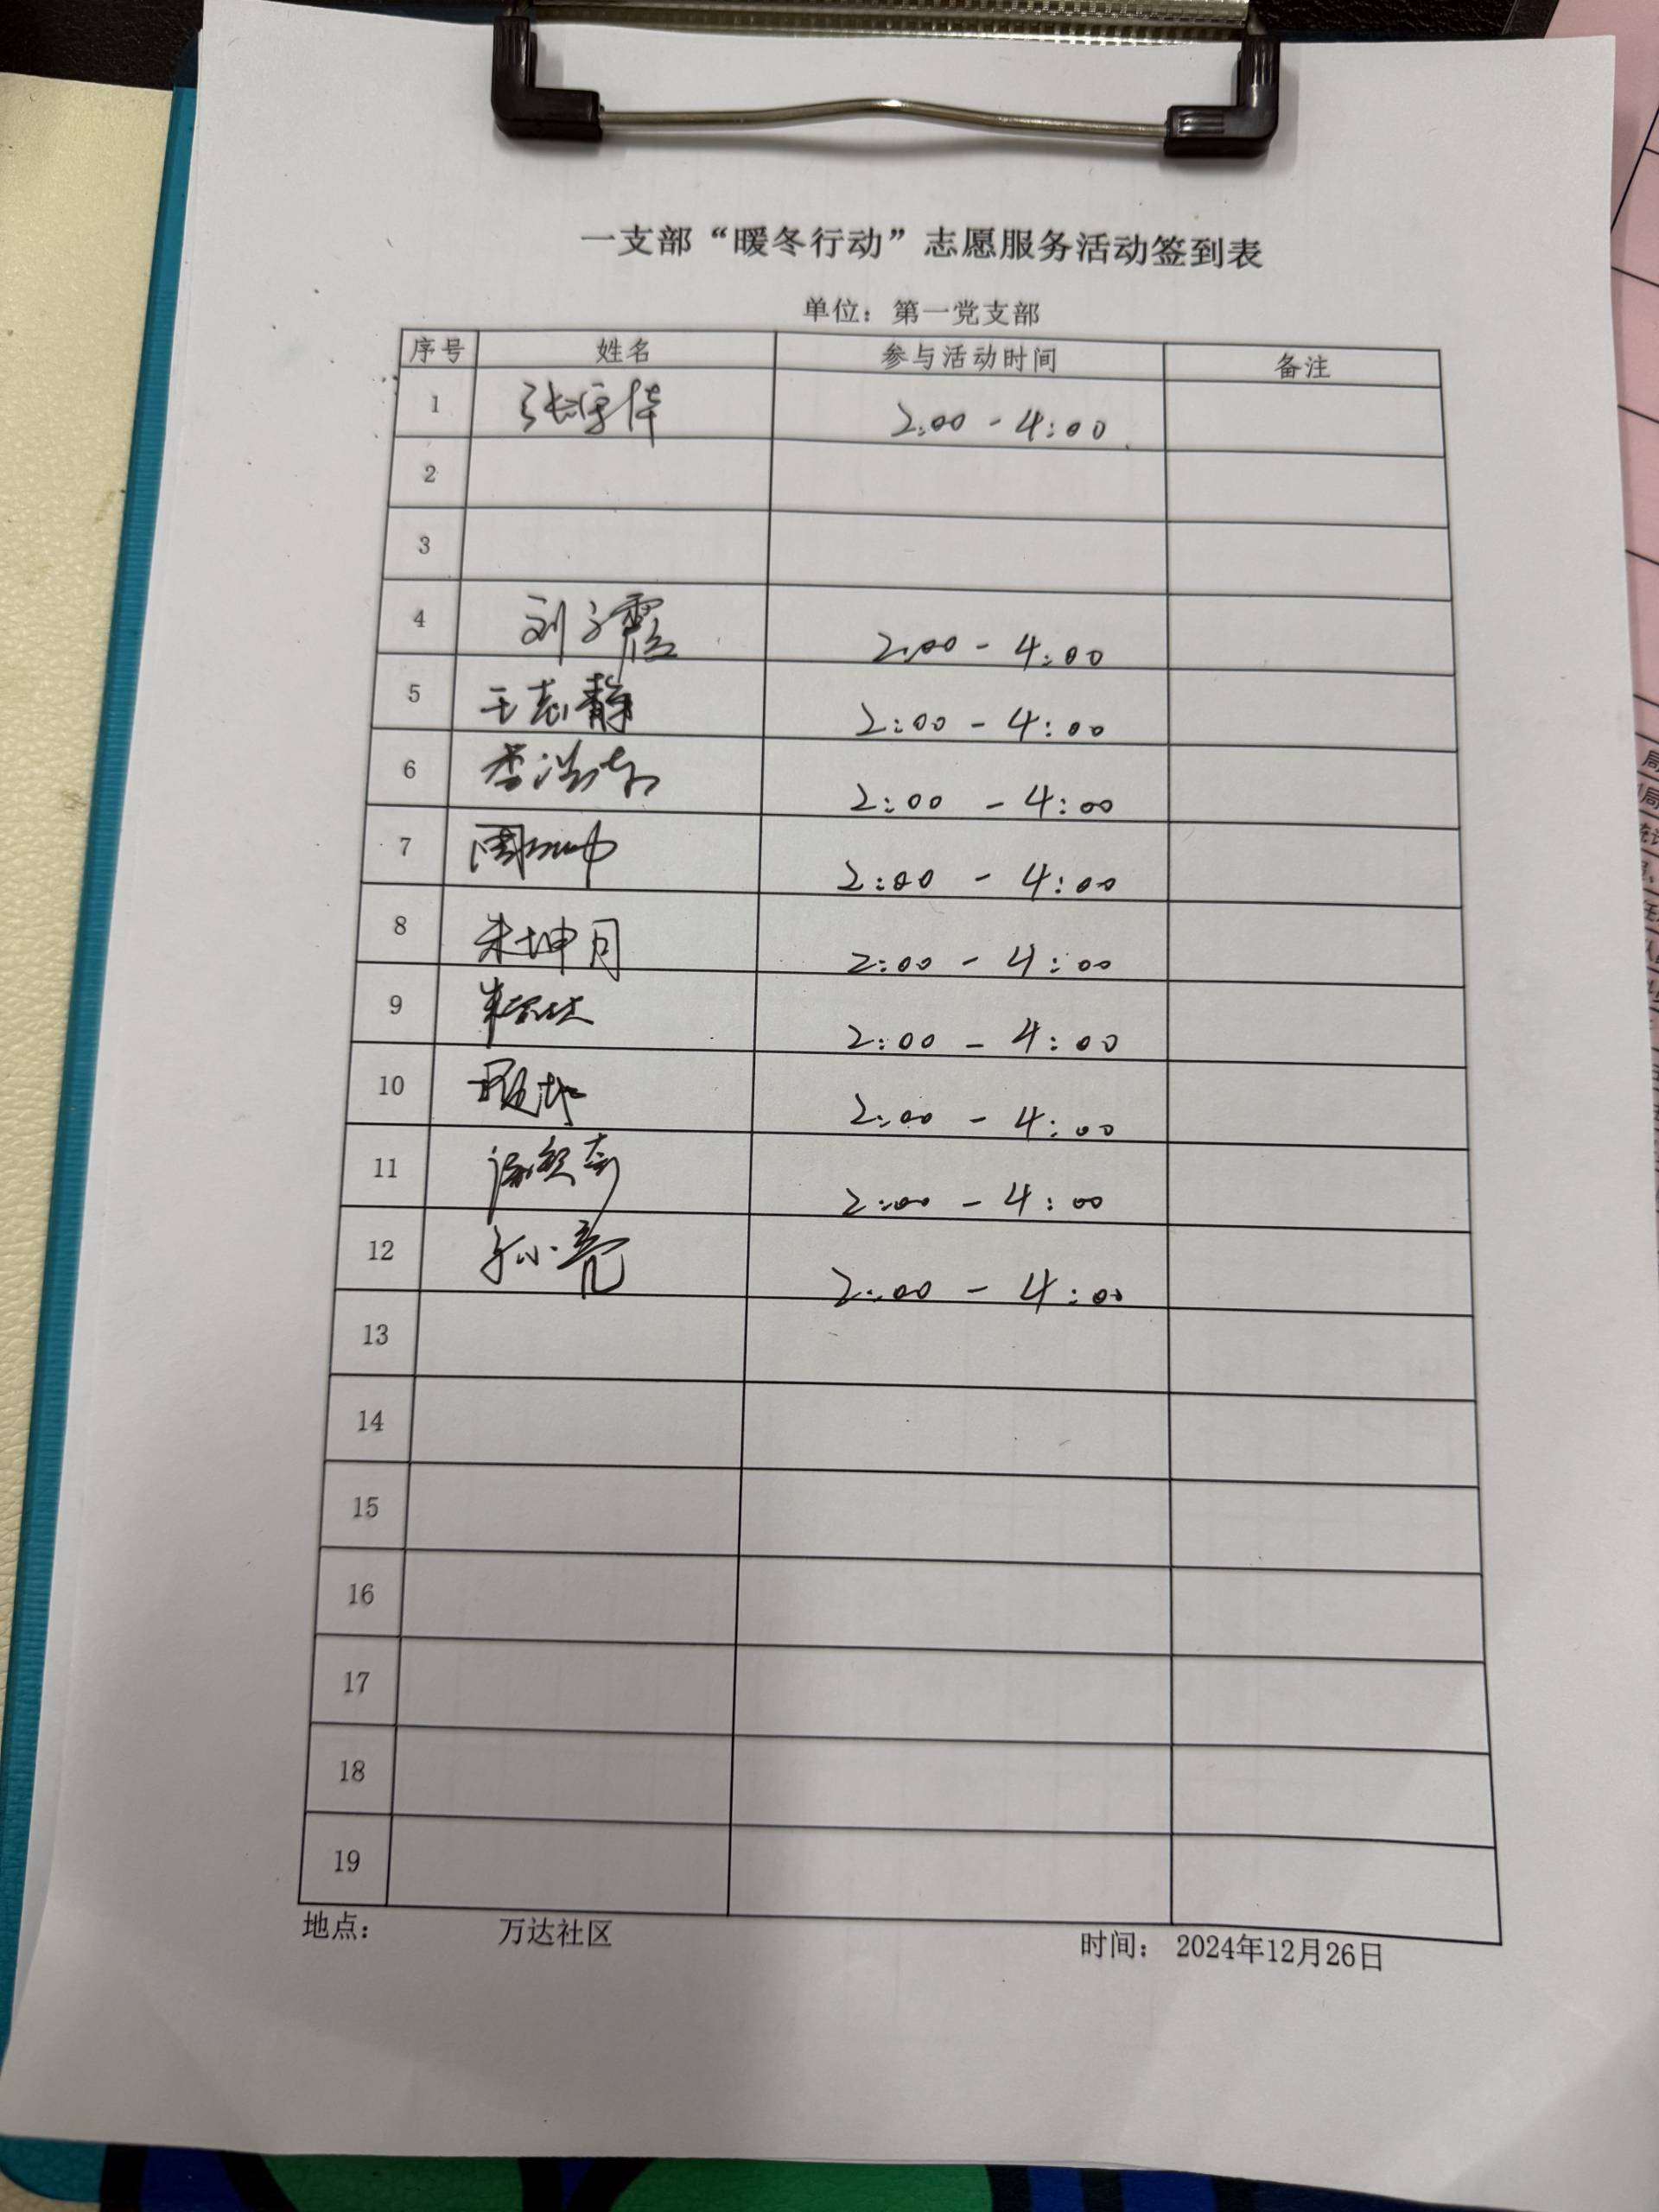 一支部“暖冬行动”志愿服务活动签到表
单位：第一党支部
序号 姓名 参与活动时间 备注
1 2:00 - 4:00
2
3
4 刘子霞 2:00 - 4:00
5 王志静 2:00 - 4:00
6 2:00 - 4:00
7 2:00 - 4:00
8 朱坤月 2:00 - 4:00
9 2:00 - 4:00
10 2:00 - 4:00
11 2:00 - 4:00
12 孙小亮 2:00 - 4:00
13
14
15
16
17
18
19
地点： 万达社区 时间： 2024年12月26日